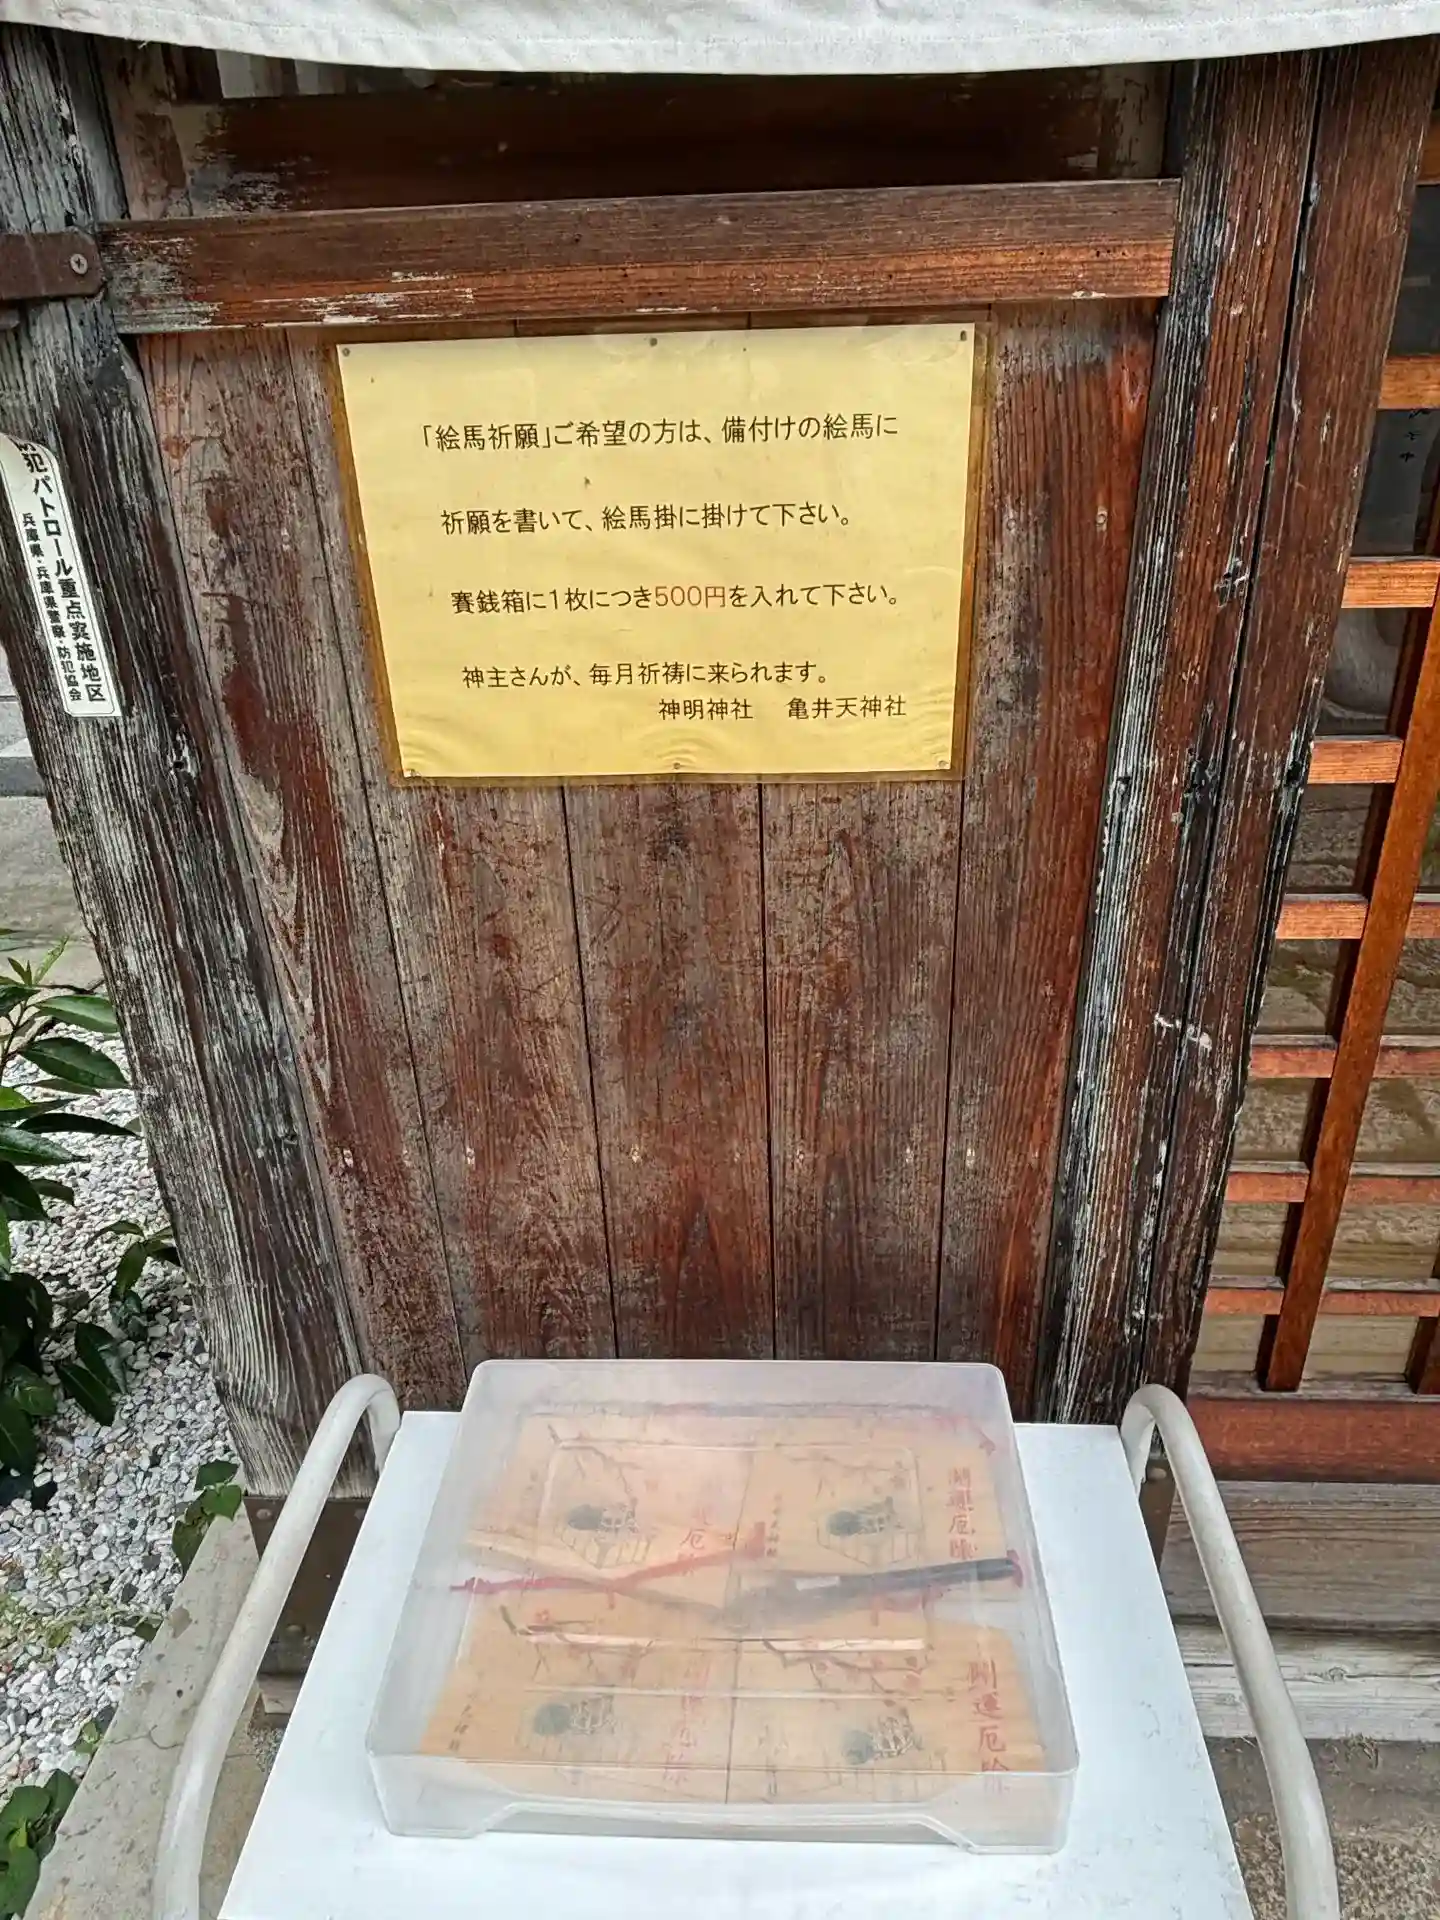 「絵馬祈願」ご希望の方は、備付けの絵馬に
祈願を書いて、絵馬掛に掛けて下さい。
賽銭箱に1枚につき500円を入れて下さい。
神主さんが、毎月祈祷に来られます。
神明神社 亀井天神社
防犯パトロール重点実施地区
兵庫県・兵庫県警察・防犯協会
開運厄除
厄除
開運厄除